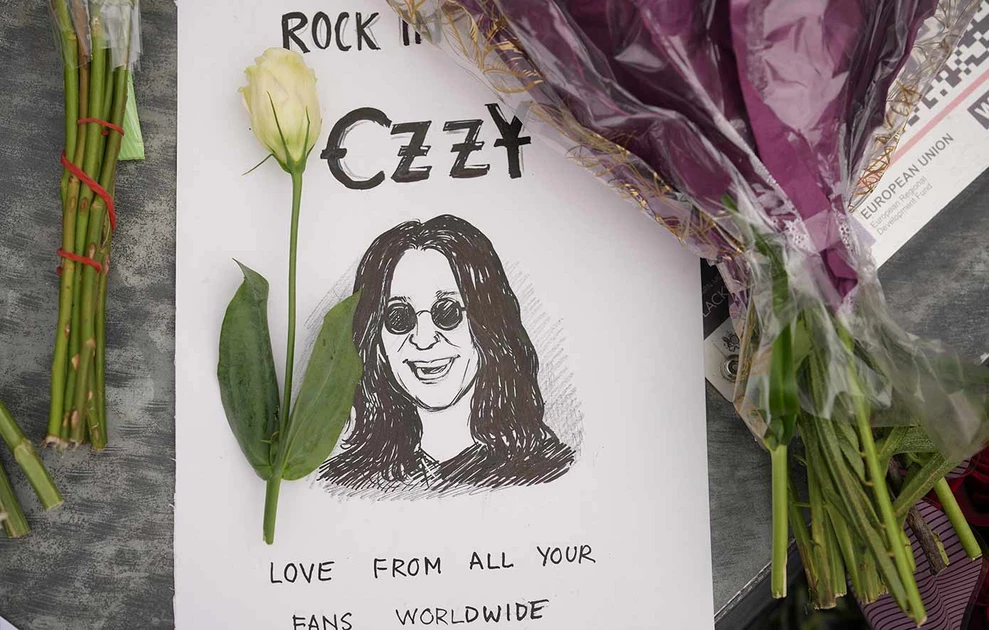 ROCK IN
OZZY
LOVE FROM ALL YOUR
FANS WORLDWIDE
EUROPEAN UNION
European Regional
Development Fund
LACK